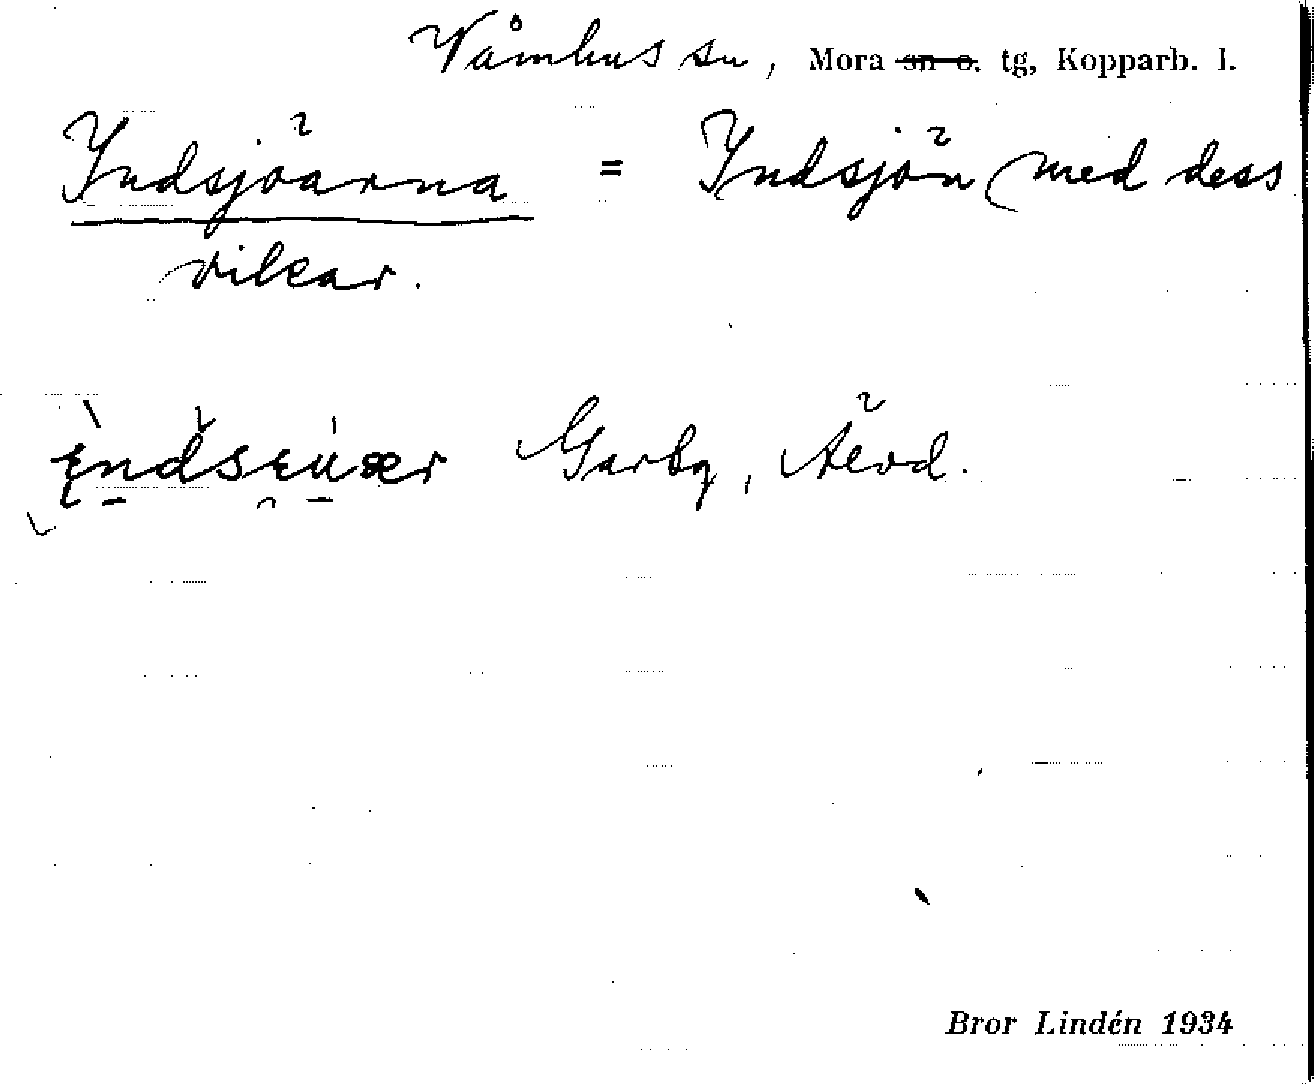 Våmhus sn, Mora sn o. tg, Kopparb. l.
Indsjöarna = Indsjön med dess
vikar.
Garby, Älvd.
Bror Lindén 1934